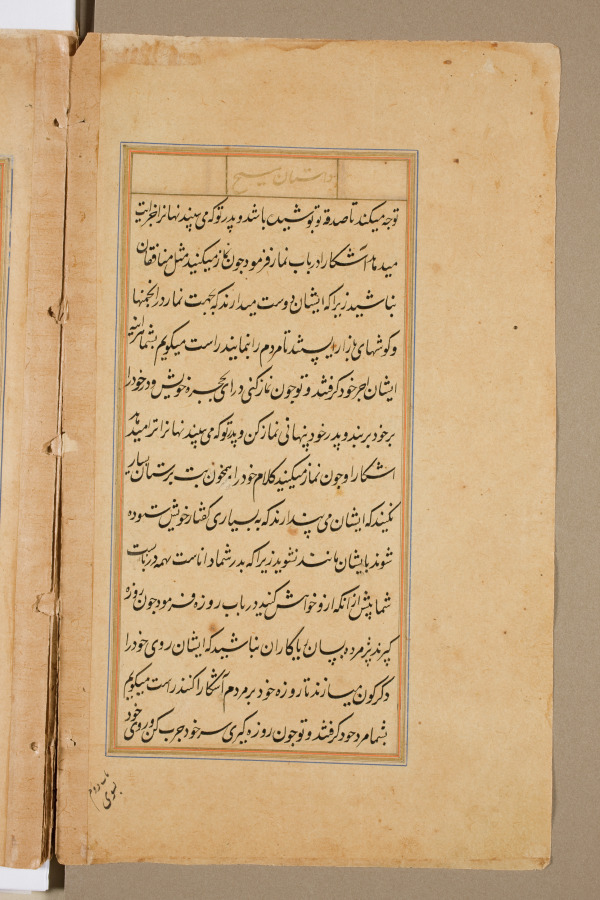 داستان مسیح
توجه میکند تا صدقه تو پوشیده باشد و پدر تو که می بیند نهانرا اجرایت
میدهد آشکارا در باب نماز فرمود چون نماز میکنید مثل منافقان
نباشید زیرا که ایشان دوست میدارند که بجهت نماز در انجمنها
و کوشهای بازار ایستند تا مردم را نمایند راست میکویم بشما هرآینه
ایشان اجر خود کرفتند و تو چون نماز کنی درای بحجره خویش و در خود را
بر خود بربند و پدر خود پنهانی نماز کن و پدر تو که می بیند نهانرا ترا میدهد
اشکارا و چون نماز میکنید کلام خود را همچون بت پرستان بسیار
نکنید که ایشان می پندارند که به بسیاری کفتار خویش ستوده
شوند بایشان مانند نشوید زیرا که پدر شما داناست بهمه دربایست
شما پیش از آنکه ازو خواهش کنید در باب روزه فرمود چون روزه
کیرند پژمرده بسان ریاکاران نباشید که ایشان روی خود را
دکرکون میسازند تا روزه خود بر مردم آشکارا کنند راست میکویم
بشما مزد خود کرفتند و تو چون روزه کیری سر خود چرب کن و روی خود
بشوی